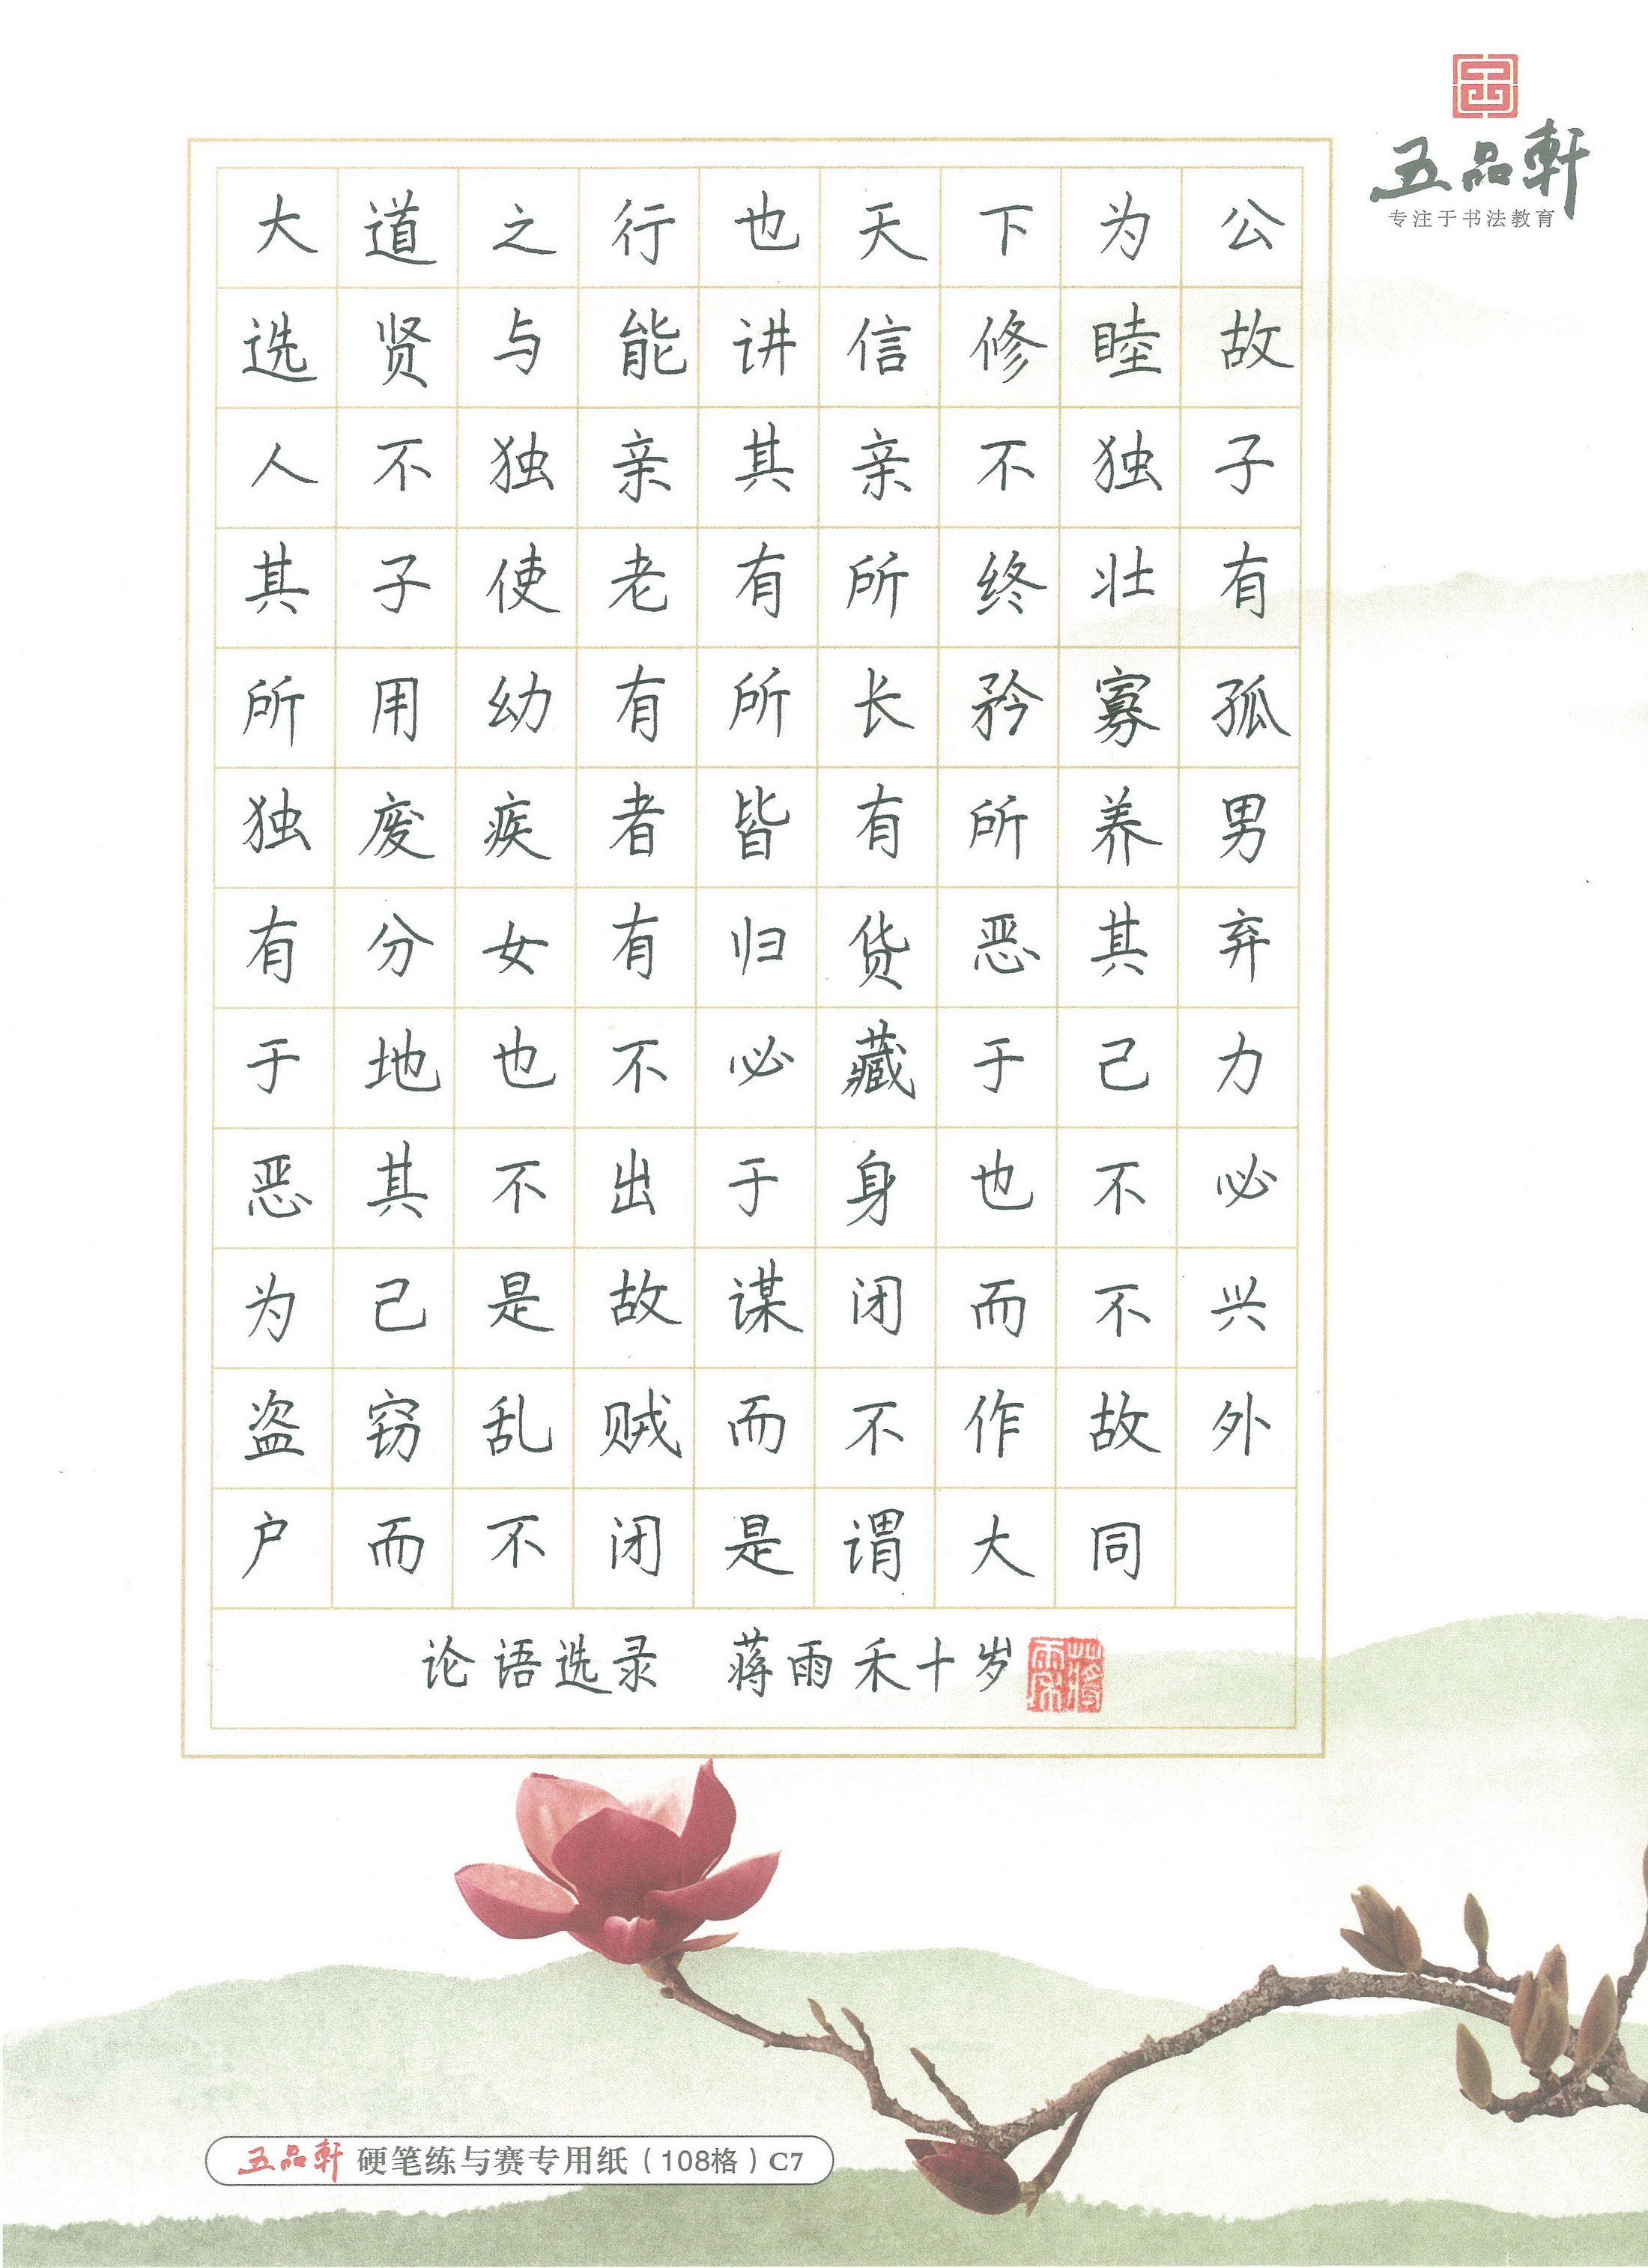 五品軒
专注于书法教育
大道之行也天下为公
选贤与能讲信修睦故
人不独亲其亲不独子
其子使老有所终壮有
所用幼有所长矜寡孤
独废疾者皆有所养男
有分女有归货恶其弃
于地也不必藏于己力
恶其不出于身也不必
为己是故谋闭而不兴
盗窃乱贼而不作故外
户而不闭是谓大同
论语选录 蒋雨禾十岁
五品軒 硬笔练与赛专用纸（108格）C7